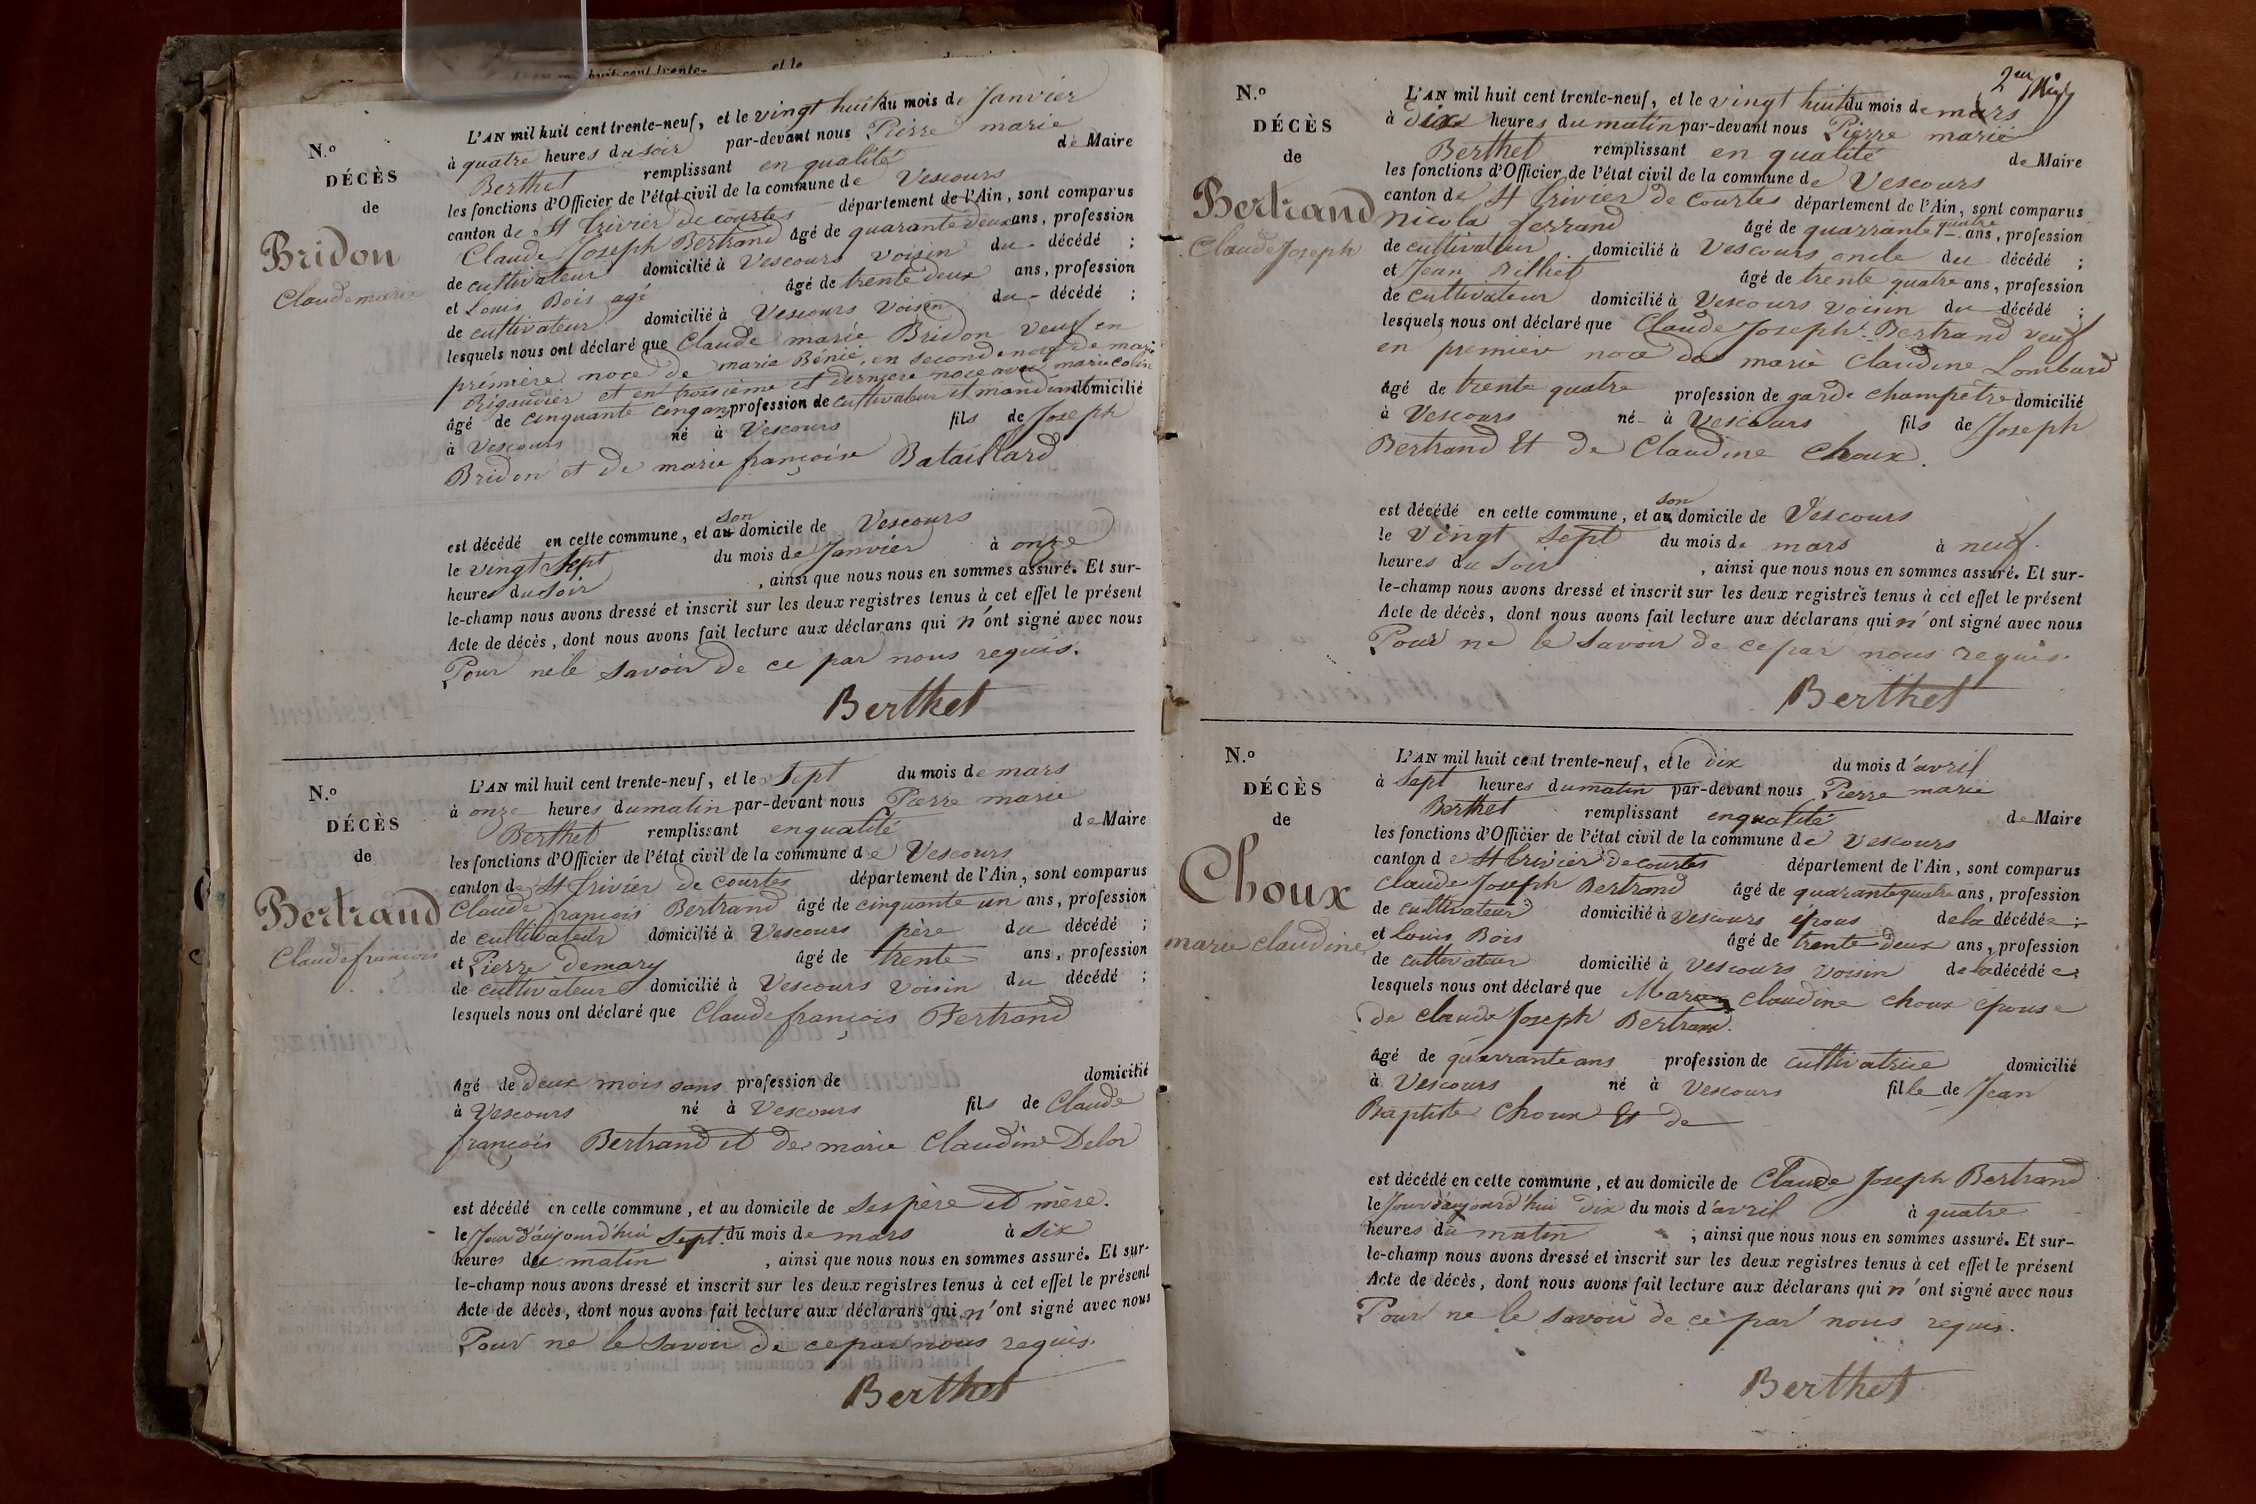 huit cent trente- et le
N.o
DÉCÈS
de
Bridon
Claude marie
L'AN mil huit cent trente-neuf, et le vingt huit du mois de Janvier
à quatre heures du soir par-devant nous Pierre marie
Berthet remplissant en qualité de Maire
les fonctions d'Officier de l'état civil de la commune de Vescours
canton de St Trivier de courtes département de l'Ain, sont comparus
Claude Joseph Bertrand âgé de quarante deux ans, profession
de cultivateur domicilié à Vescours voisin du décédé ;
et Louis Bois agé âgé de trente deux ans, profession
de cultivateur domicilié à Vescours voisin du décédé ;
lesquels nous ont déclaré que Claude marie Bridon veuf en
première noce de marie Bénié, en seconde noce de marie
Rigaudier et en troisième et derniere noce avec marie Colin
âgé de cinquante cinq ans profession de cultivateur et mandiant domicilié
à Vescours né à Vescours fils de Joseph
Bridon et de marie françoise Bataillard
est décédé en cette commune, et au son domicile de Vescours
le vingt Sept du mois de Janvier à onze
heures du soir , ainsi que nous nous en sommes assuré. Et sur-
le-champ nous avons dressé et inscrit sur les deux registres tenus à cet effet le présent
Acte de décès, dont nous avons fait lecture aux déclarans qui n'ont signé avec nous
Pour ne le savoir de ce par nous requis.
Berthet
N.o
DÉCÈS
de
Bertrand
Claude françois
L'AN mil huit cent trente-neuf, et le Sept du mois de mars
à onze heures du matin par-devant nous Pierre marie
Berthet remplissant en qualité de Maire
les fonctions d'Officier de l'état civil de la commune de Vescours
canton de St Trivier de courtes département de l'Ain, sont comparus
Claude françois Bertrand âgé de cinquante un ans, profession
de cultivateur domicilié à Vescours père du décédé ;
et Pierre demary âgé de trente ans, profession
de cultivateur domicilié à Vescours voisin du décédé ;
lesquels nous ont déclaré que Claude françois Bertrand
âgé de deux mois sans profession de domicilié
à Vescours né à Vescours fils de Claude
françois Bertrand et de marie Claudine Delor
est décédé en cette commune, et au domicile de Ses père et mère.
le Jour d'aujourd'hui Sept du mois de mars à Six
heures du matin , ainsi que nous nous en sommes assuré. Et sur-
le-champ nous avons dressé et inscrit sur les deux registres tenus à cet effet le présent
Acte de décès, dont nous avons fait lecture aux déclarans qui n'ont signé avec nous
Pour ne le savoir de ce par nous requis.
Berthet
N.o
DÉCÈS
de
Bertrand
Claude Joseph
L'AN mil huit cent trente-neuf, et le vingt huit du mois de mars
à dix heures du matin par-devant nous Pierre marie
Berthet remplissant en qualité de Maire
les fonctions d'Officier de l'état civil de la commune de Vescours
canton de St Trivier de Courtes département de l'Ain, sont comparus
Nicola ferrand âgé de quarrante quatre ans, profession
de cultivateur domicilié à Vescours oncle du décédé ;
et Jean Billiet âgé de trente quatre ans, profession
de cultivateur domicilié à Vescours voisin du décédé ;
lesquels nous ont déclaré que Claude Joseph Bertrand veuf
en premiere noce de marie Claudine Lombard
âgé de trente quatre profession de garde champêtre domicilié
à Vescours né à Vescours fils de Joseph
Bertrand Et de Claudine Choux.
est décédé en cette commune, et au son domicile de Vescours
le vingt Sept du mois de mars à neuf
heures du Soir , ainsi que nous nous en sommes assuré. Et sur-
le-champ nous avons dressé et inscrit sur les deux registres tenus à cet effet le présent
Acte de décès, dont nous avons fait lecture aux déclarans qui n'ont signé avec nous
Pour ne le Savoir de ce par nous requis.
Berthet
N.o
DÉCÈS
de
Choux
marie claudine
L'AN mil huit cent trente-neuf, et le dix du mois d'avril
à Sept heures du matin par-devant nous Pierre marie
Berthet remplissant en qualité de Maire
les fonctions d'Officier de l'état civil de la commune de Vescours
canton de St Trivier de courtes département de l'Ain, sont comparus
Claude Joseph Bertrand âgé de quarante quatre ans, profession
de cultivateur domicilié à Vescours époux de la décédée ;
et Louis Bois âgé de trente deux ans, profession
de cultivateur domicilié à Vescours voisin de la décédée ;
lesquels nous ont déclaré que Marie claudine choux épouse
de claude Joseph Bertrand.
âgé de quarrante ans profession de cultivatrice domicilié
à Vescours né à Vescours fille de Jean
Baptiste Choux Et de
est décédé en cette commune, et au domicile de Claude Joseph Bertrand
le Jour d'aujourd'hui dix du mois d'avril à quatre
heures du matin ; ainsi que nous nous en sommes assuré. Et sur-
le-champ nous avons dressé et inscrit sur les deux registres tenus à cet effet le présent
Acte de décès, dont nous avons fait lecture aux déclarans qui n'ont signé avec nous
Pour ne le savoir de ce par nous requis.
Berthet